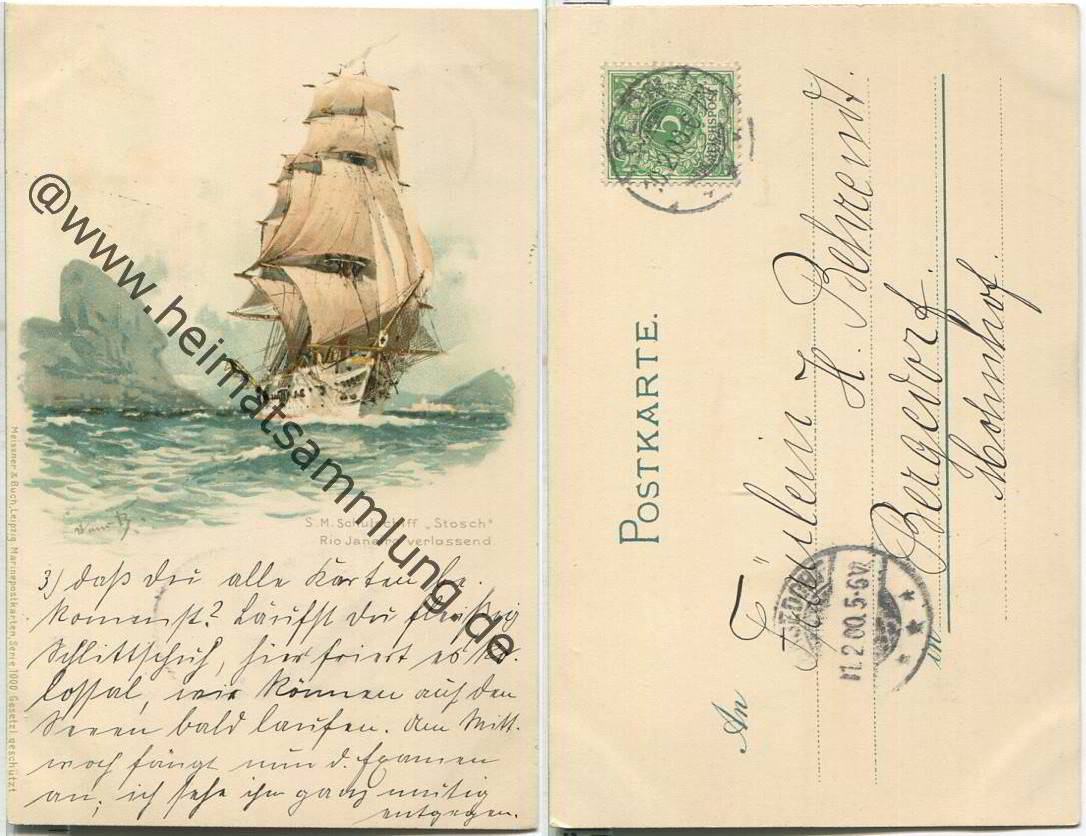 S.M. Schulschiff „Stosch“
Rio Janeiro verlassend.
3) daß du alle Karten be-
kommst? Läufst du fleißig
Schlittschuh, hier friert es ko-
lossal, wir können auf den
Seeen bald laufen. Am Mitt-
woch fängt nun d. Examen
an, ich sehe ihm ganz mutig
entgegen.
Meissner & Buch, Leipzig, Marinepostkarten Serie 1000 Gesetzl. geschützt
@www.heimatsammlung.de
POSTKARTE.
REICHSPOST
5
An Fräulein H. Behrendt.
in Bergedorf.
Mohnhof.
11.2.00. 5-6 N